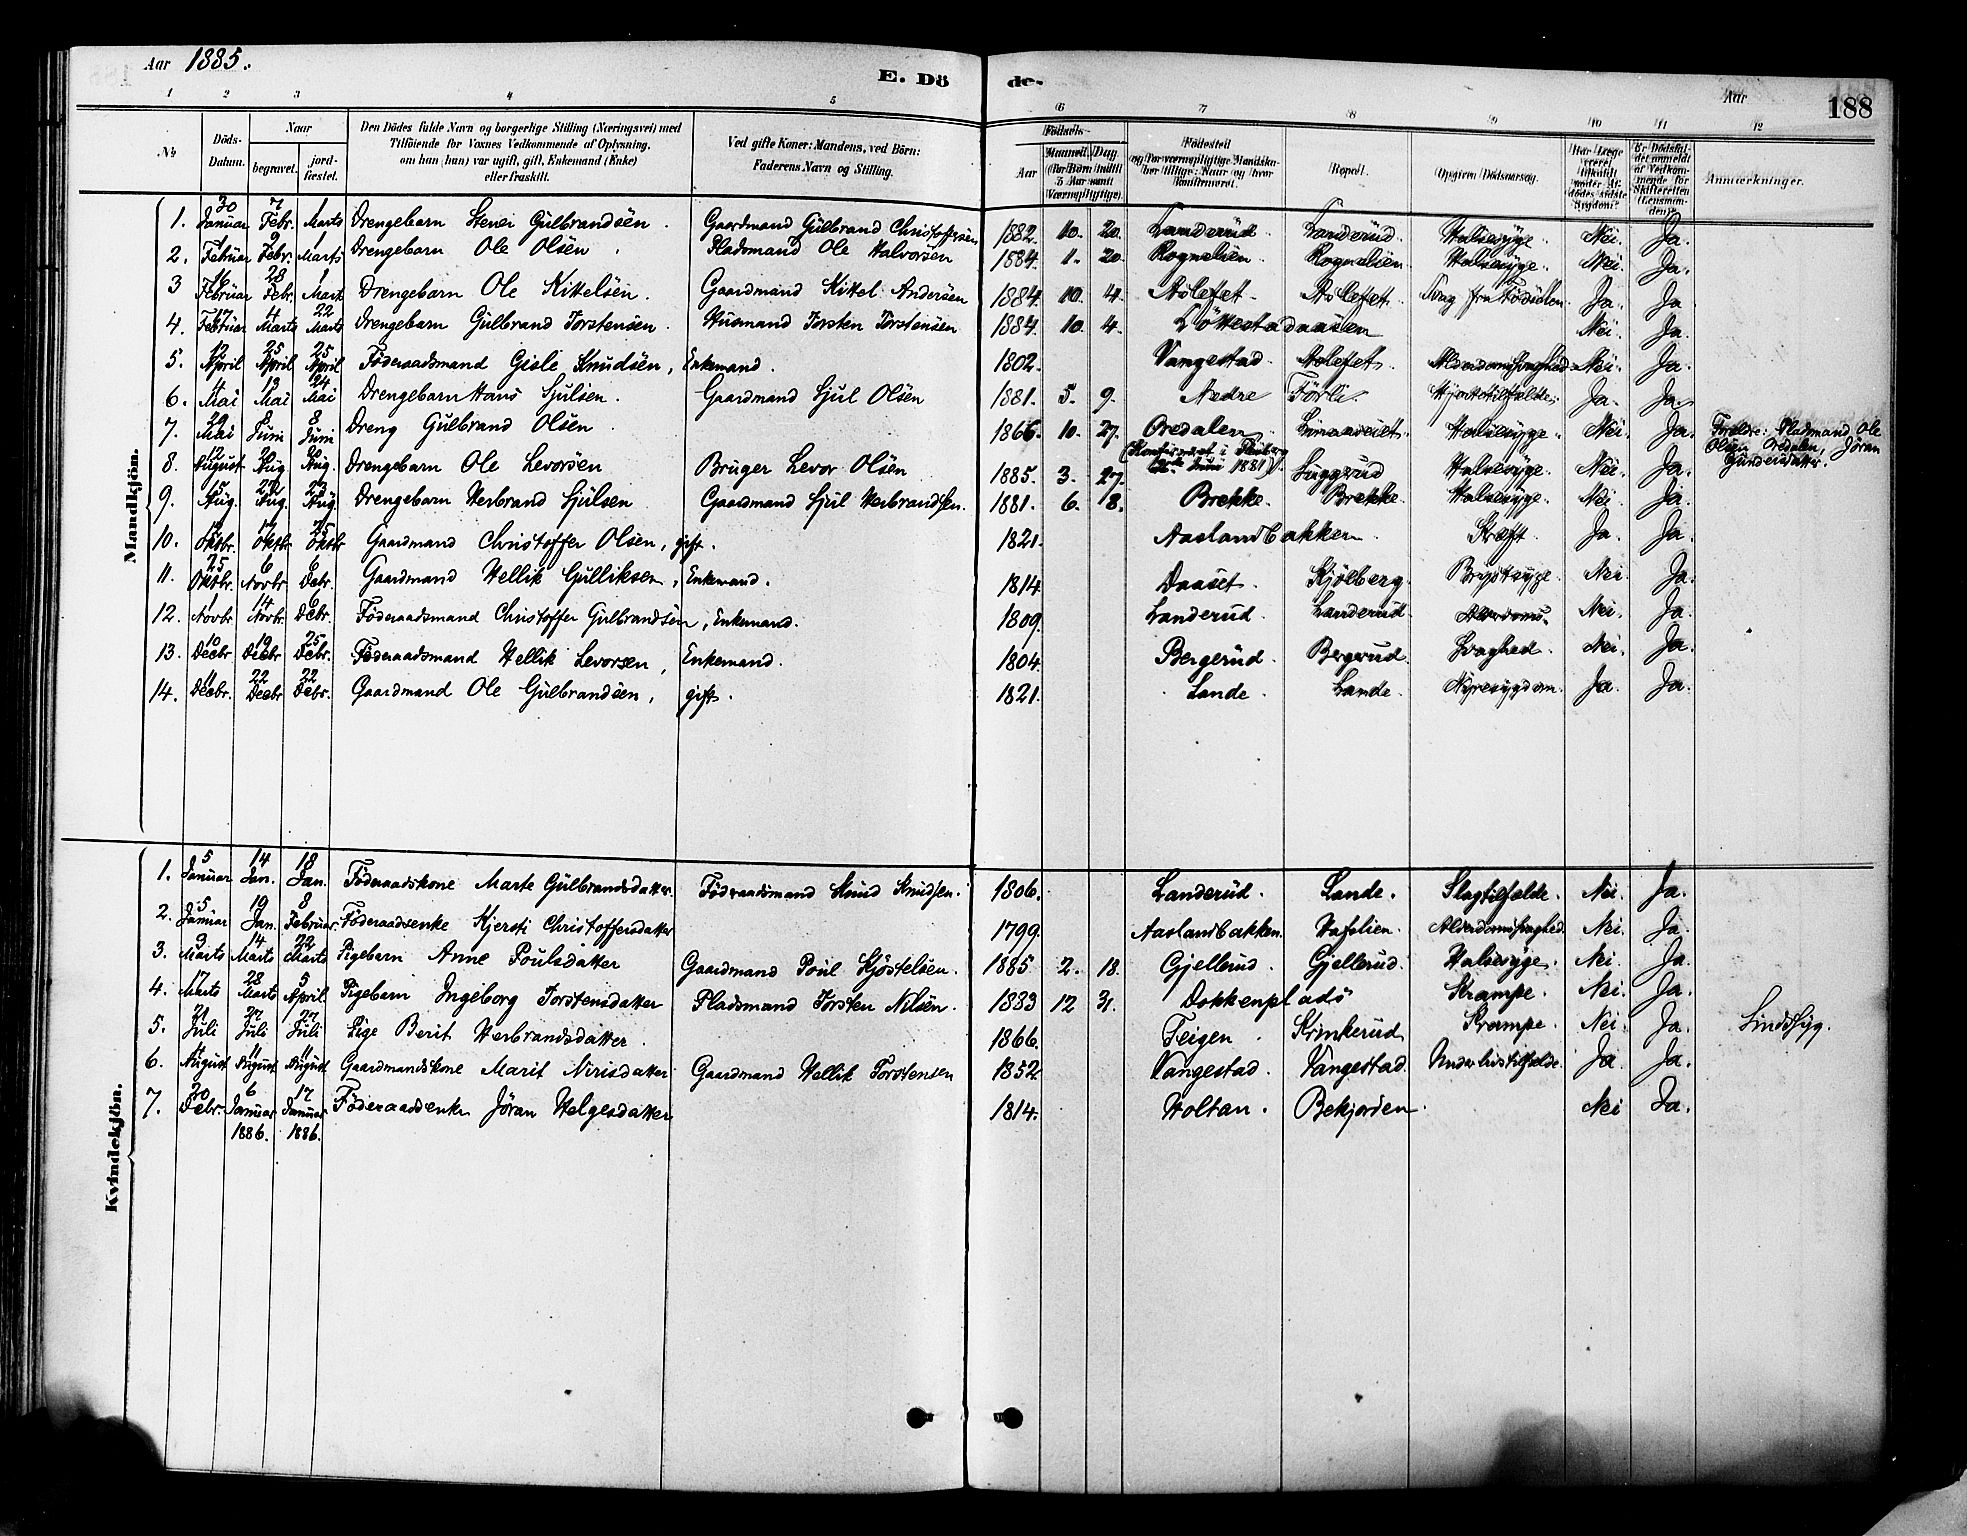 Aar 1885.
E. Dö de-
Aar 188
1 2 3 4 5 6 7 8 9 10 11 12
№ Döds-Datum. Naar begravet. jord-fæstet. Den Dödes fulde Navn og borgerlige Stilling (Næringsvei) med Tilföiende for Voxnes Vedkommende af Oplysning, om han (hun) var ugift, gift, Enkemand (Enke) eller fraskilt. Ved gifte Koner: Mandens, ved Börn: Faderens Navn og Stilling. Födsels- Aar Maaned. Dag (For Börn indtil 5 Aar samt Værnepligtige) Födested og for værnepligtige Mandskaber tillige: Naar og hvor konfirmeret. Bopæl. Opgiven Dödsaarsag. Har Læge været tilkaldt under Afdödes sidste Sygdom? Er Dödsfaldet anmeldt af Vedkommende for Skifteretten (Lensmanden)? Anmærkninger.
Mandkjön.
1. 30 Januar 7 Febr. 1 Marts Drengebarn Stenei Gulbrandsen. Gaardmand Gulbrand Christoffersen 1882. 10. 20. Landerud Landerud. Halssyge. Nei. Ja.
2. Februar 9 Febr. 1 Marts Drengebarn Ole Olsen. Pladsmand Ole Halvorsen 1884. 1. 20. Rognelien. Rognelien. Halssyge. Nei. Ja.
3 16 Februar 28 Febr. 1 Mart Drengebarn Ole Kittelsen. Gaardmand Kittel Andersen 1884. 10. 4. Aslefet. Aslefet. Svag fra Födselen. Ja. Ja
4. 17 Februar 4 Marts 22 Marts Drengebarn Gulbrand Torstensen. Husmand Torsten Torstensen 1884. 10. 4. Nei. Ja.
5. 12 April 25 April 25 April Föderaadsmand Gisle Knudsen, Enkemand. 1802. Vangestad. Aslefet. Alderdomssvaghed Nei. Ja.
6. 4 Mai 13 Mai 24 Mai Drengebarn Hans Sjulsen. Gaardmand Sjul Olsen 1881. 5. 9. Nedre Förli. Hjertetilfælde. Ja. Ja.
7. 29 Mai 8 Juni 8 Juni Dreng Gulbrand Olsen 1866. 10. 27. Oredalen (Konfirmeret i Flesberg Juni 1881). Halssyge. Nei. Ja. Forældre: Pladsmand Ole Olsen Oredalen, Jöran Gundersdatter.
8. 12 August 20 Aug. 20 Aug. Drengebarn Ole Levorsen Bruger Levor Olsen 1885. 3. 27. Luggerud Halssyge. Nei. Ja.
9. 15 Aug. Aug. 23 Aug. Drengebarn Herbrand Sjulsen Gaardmand Sjul Herbrandsen. 1881. 6. 8. Brekke. Brekke. Halssyge. Nei. Ja.
10. Oktbr. 17 Oktbr 25 Oktbr Gaardmand Christoffer Olsen, gift. 1821. Aaslandbakken. Kræft. Ja. Ja.
11. 25 Oktbr. 6 Novbr. 6 Debr. Gaardmand Hellik Gulliksen, Enkemand. 1814. Daaset. Kjölberg. Brystsyge. Nei. Ja.
12. 1 Novbr 14 Novbr. 6 Debr. Föderaadsmand Christoffer Gulbrandsen, Enkemand. 1809. Landerud. Landerud. Alderdoms- Nei. Ja.
13. 10 Decbr 19 Decbr 25 Debr. Föderaadsmand Hellik Levorsen, Enkemand. 1804. Bergerud. Bergerud. svaghed. Nei. Ja.
14. 11 Decbr. 22 Decbr 22 Debr. Gaardmand Ole Gulbrandsen, gift. 1821. Lande. Lande. Nyresygdom. Ja. Ja.
Kvindekjön.
1. 5 Januar 14 Jan. 18 Jan. Föderaadskone Marte Gulbrandsdatter. Föderaadsmand Knud Knudsen. 1806. Landerud. Lande. Slagtilfælde. Nei. Ja.
2. 5 Januar 19 Jan. 8 Februar. Föderaadsenke Kjersti Christoffersdatter 1799. Aaslandbakken. Haflien. Alderdomssvaghed. Nei. Ja.
3. 9 Marts 14 Marts 22 Marts Pigebarn Anne Poulsdatter Gaardmand Poul Kjöstelsen. 1885 2. 18. Gjellerud. Gjellerud. Halssyge. Nei. Ja.
4. 17 Marts 28 Marts 5 April. Pigebarn Ingeborg Torstensdatter Pladsmand Torsten Nilsen. 1883 12 31. Dokkenplads Krampe. Nei. Ja.
5. 21 Juli 27 Juli 27 Juli Pige Berit Herbrandsdatter. 1866. Teigen. Strinkerud Krampe. Nei. Ja. Sindssyg.
6. August 11 August 11 August Gaardmandskone Marit Nirisdatter. Gaardmand Hellik Torstensen 1852 Vangestad. Vangestad. Underlivstilfælde. Ja Ja.
7. 30 Debr. 6 Januar 1886. 17 Januar 1886. Föderaadsenke Jöran Helgesdatter 1814. Holtan. Bekjorden. Nei Ja.